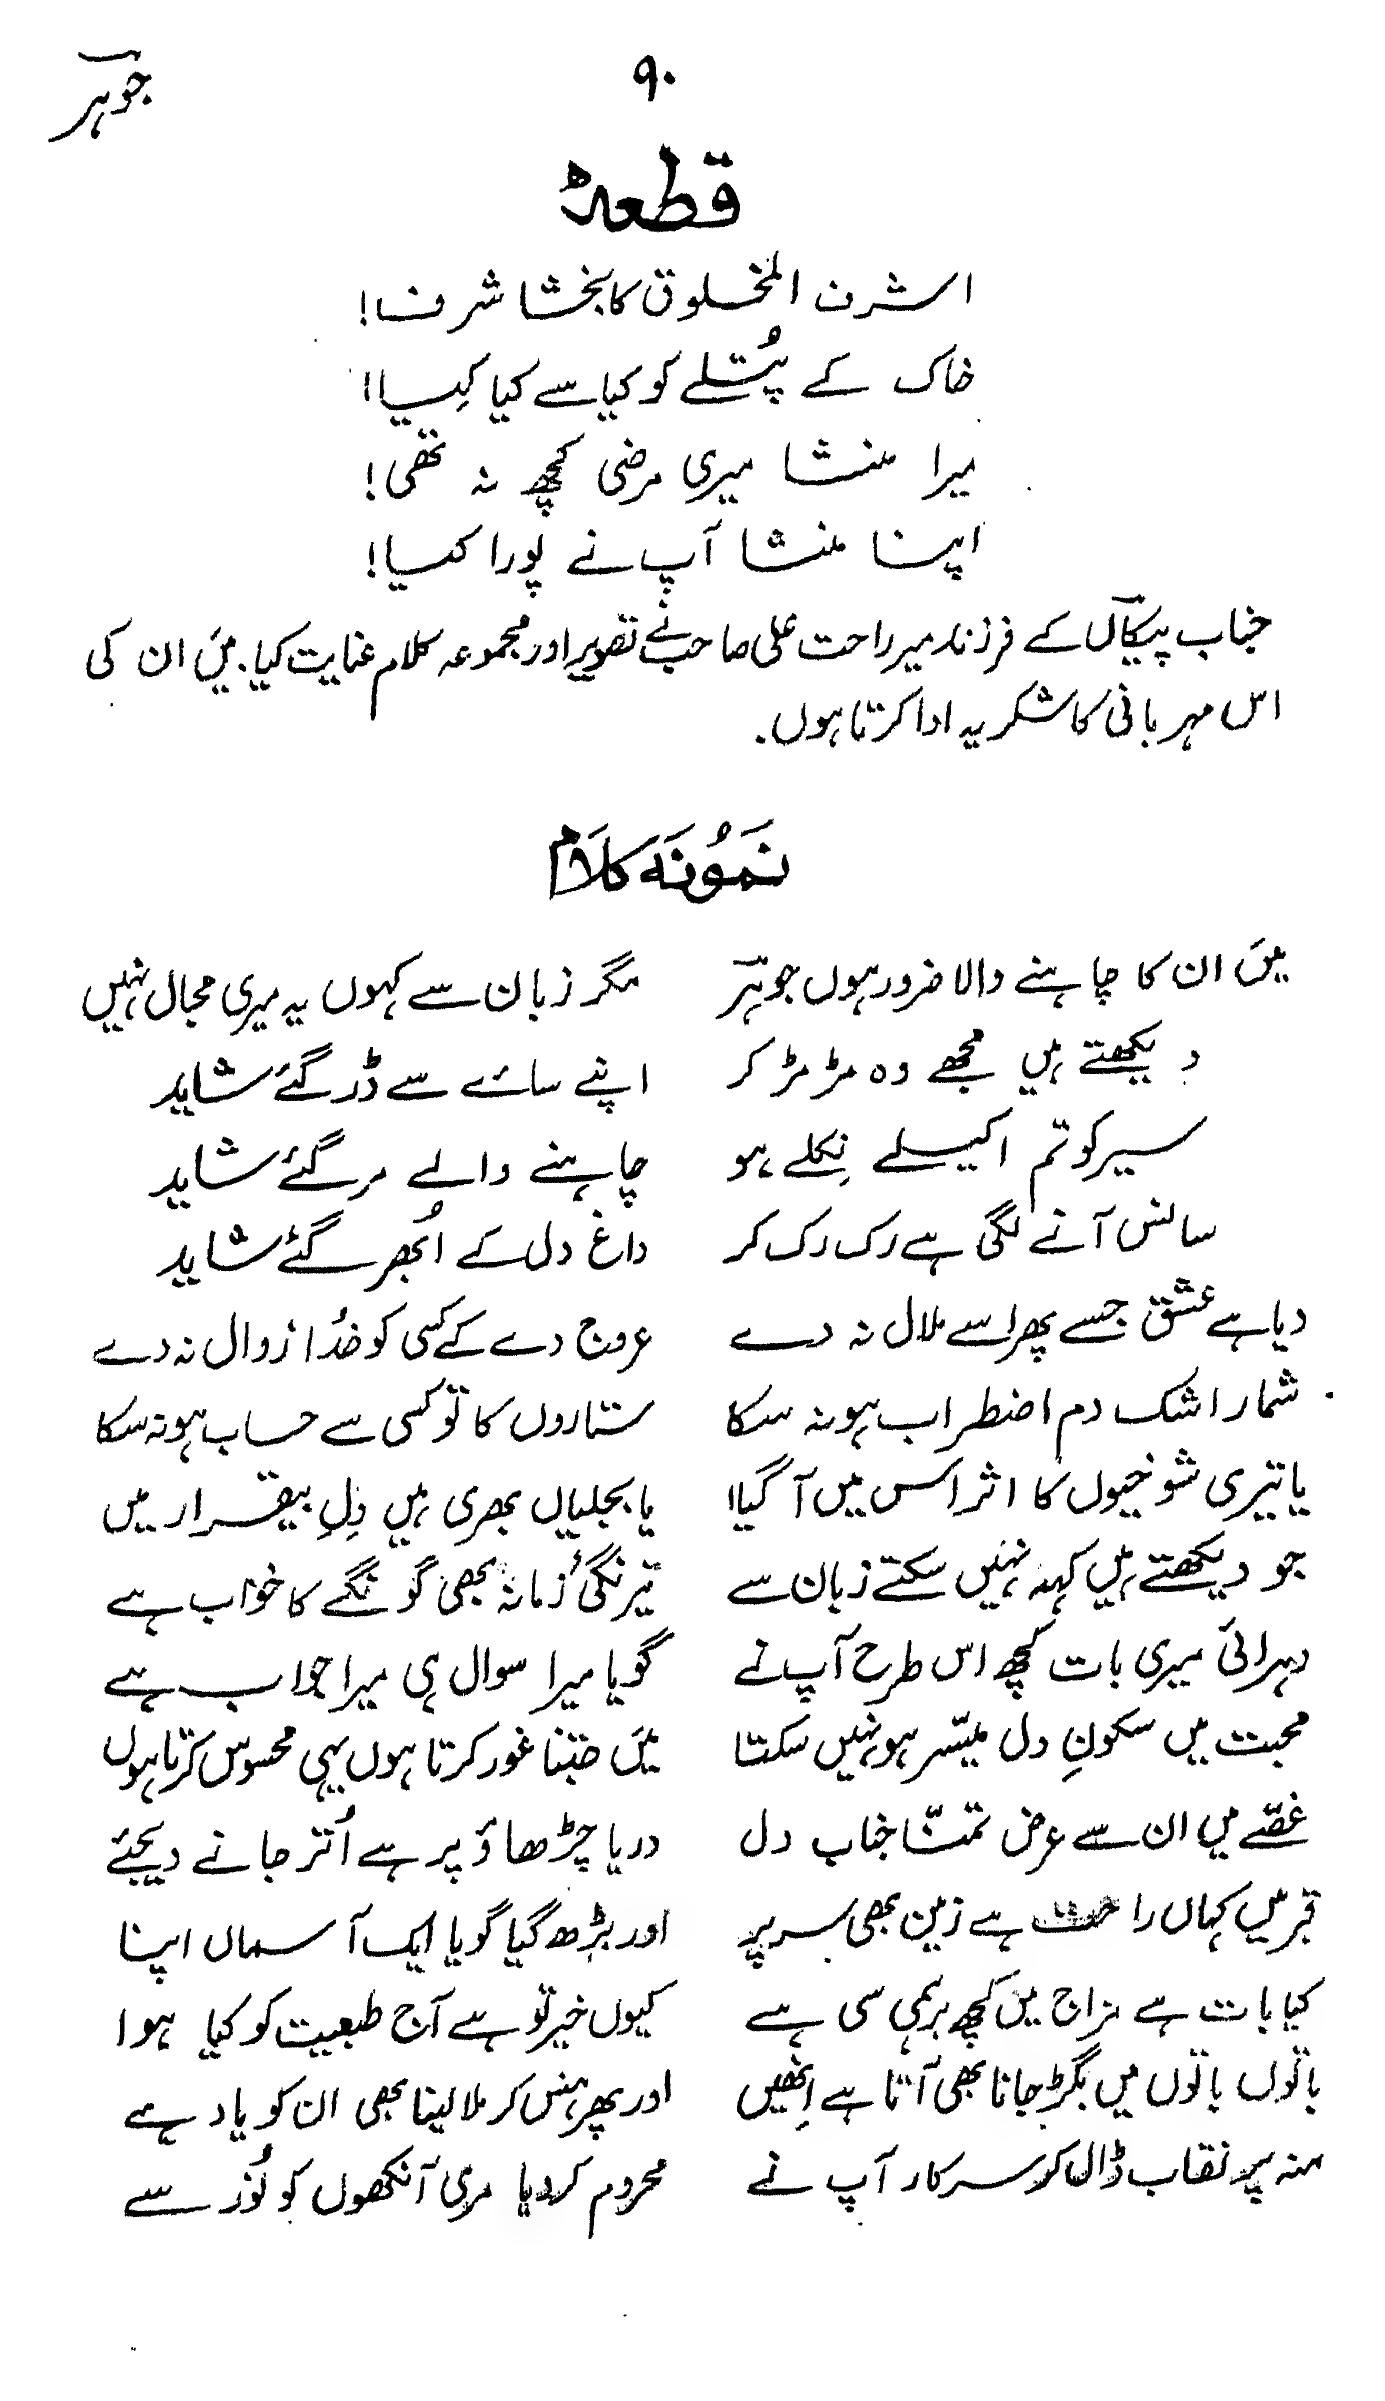 جوہر
۹۰
قطعہ
اشرف المخلوق کا بخشا شرف!
خاک کے پُتلے کو کیا سے کیا کِیا!
میرا منشا میری مرضی کچھ نہ تھی!
اپنا منشا آپ نے پورا کیا!
جناب پیکاؔل کے فرزند میر راحت علی صاحب نے تصویر اور مجموعہ کلام عنایت کیا۔ میں ان کی
اس مہربانی کا شکریہ ادا کرتا ہوں۔
نمونہ کلام
میں ان کا چاہنے والا ضرور ہوں جوہرؔ مگر زبان سے کہوں یہ میری مجال نہیں
دیکھتے ہیں مجھے وہ مڑ مڑ کر اپنے سائے سے ڈر گئے شاید
سیر کو تم اکیلے نِکلے ہو چاہنے والے مر گئے شاید
سانس آنے لگی ہے رک رک کر داغ دل کے اُبھر گئے شاید
دیا ہے عشق جسے پھر اسے ملال نہ دے عروج دے کے کسی کو خُدا زوال نہ دے
شمار اشک دم اضطراب ہو نہ سکا ستاروں کا تو کسی سے حساب ہو نہ سکا
یا تیری شوخیوں کا اثر اس میں آ گیا یا بجلیاں بھری ہیں دِلِ بیقرار میں
جو دیکھتے ہیں کہہ نہیں سکتے زبان سے نیرنگیٔ زمانہ بھی گونگے کا خواب ہے
دہرائی میری بات کچھ اس طرح آپ نے گویا میرا سوال ہی میرا جواب ہے
محبت میں سکونِ دل میسّر ہو نہیں سکتا میں جتنا غور کرتا ہوں یہی محسوس کرتا ہوں
غصّے میں ان سے عرض تمنّا جناب دل دریا چڑھاؤ پر ہے اُتر جانے دیجئے
قبر میں کہاں راحت ہے زمین بھی سر پر اور بڑھ گیا گویا ایک آسماں اپنا
کیا بات ہے مزاج میں کچھ برہمی سی ہے کیوں خیر تو ہے آج طبعیت کو کیا ہوا
باتوں باتوں میں بگڑ جانا بھی آتا ہے اِنھیں اور پھر ہنس کر ملا لینا بھی ان کو یاد ہے
منہ پر نقاب ڈال کر سرکار آپ نے محروم کر دیا مری آنکھوں کو نُور سے